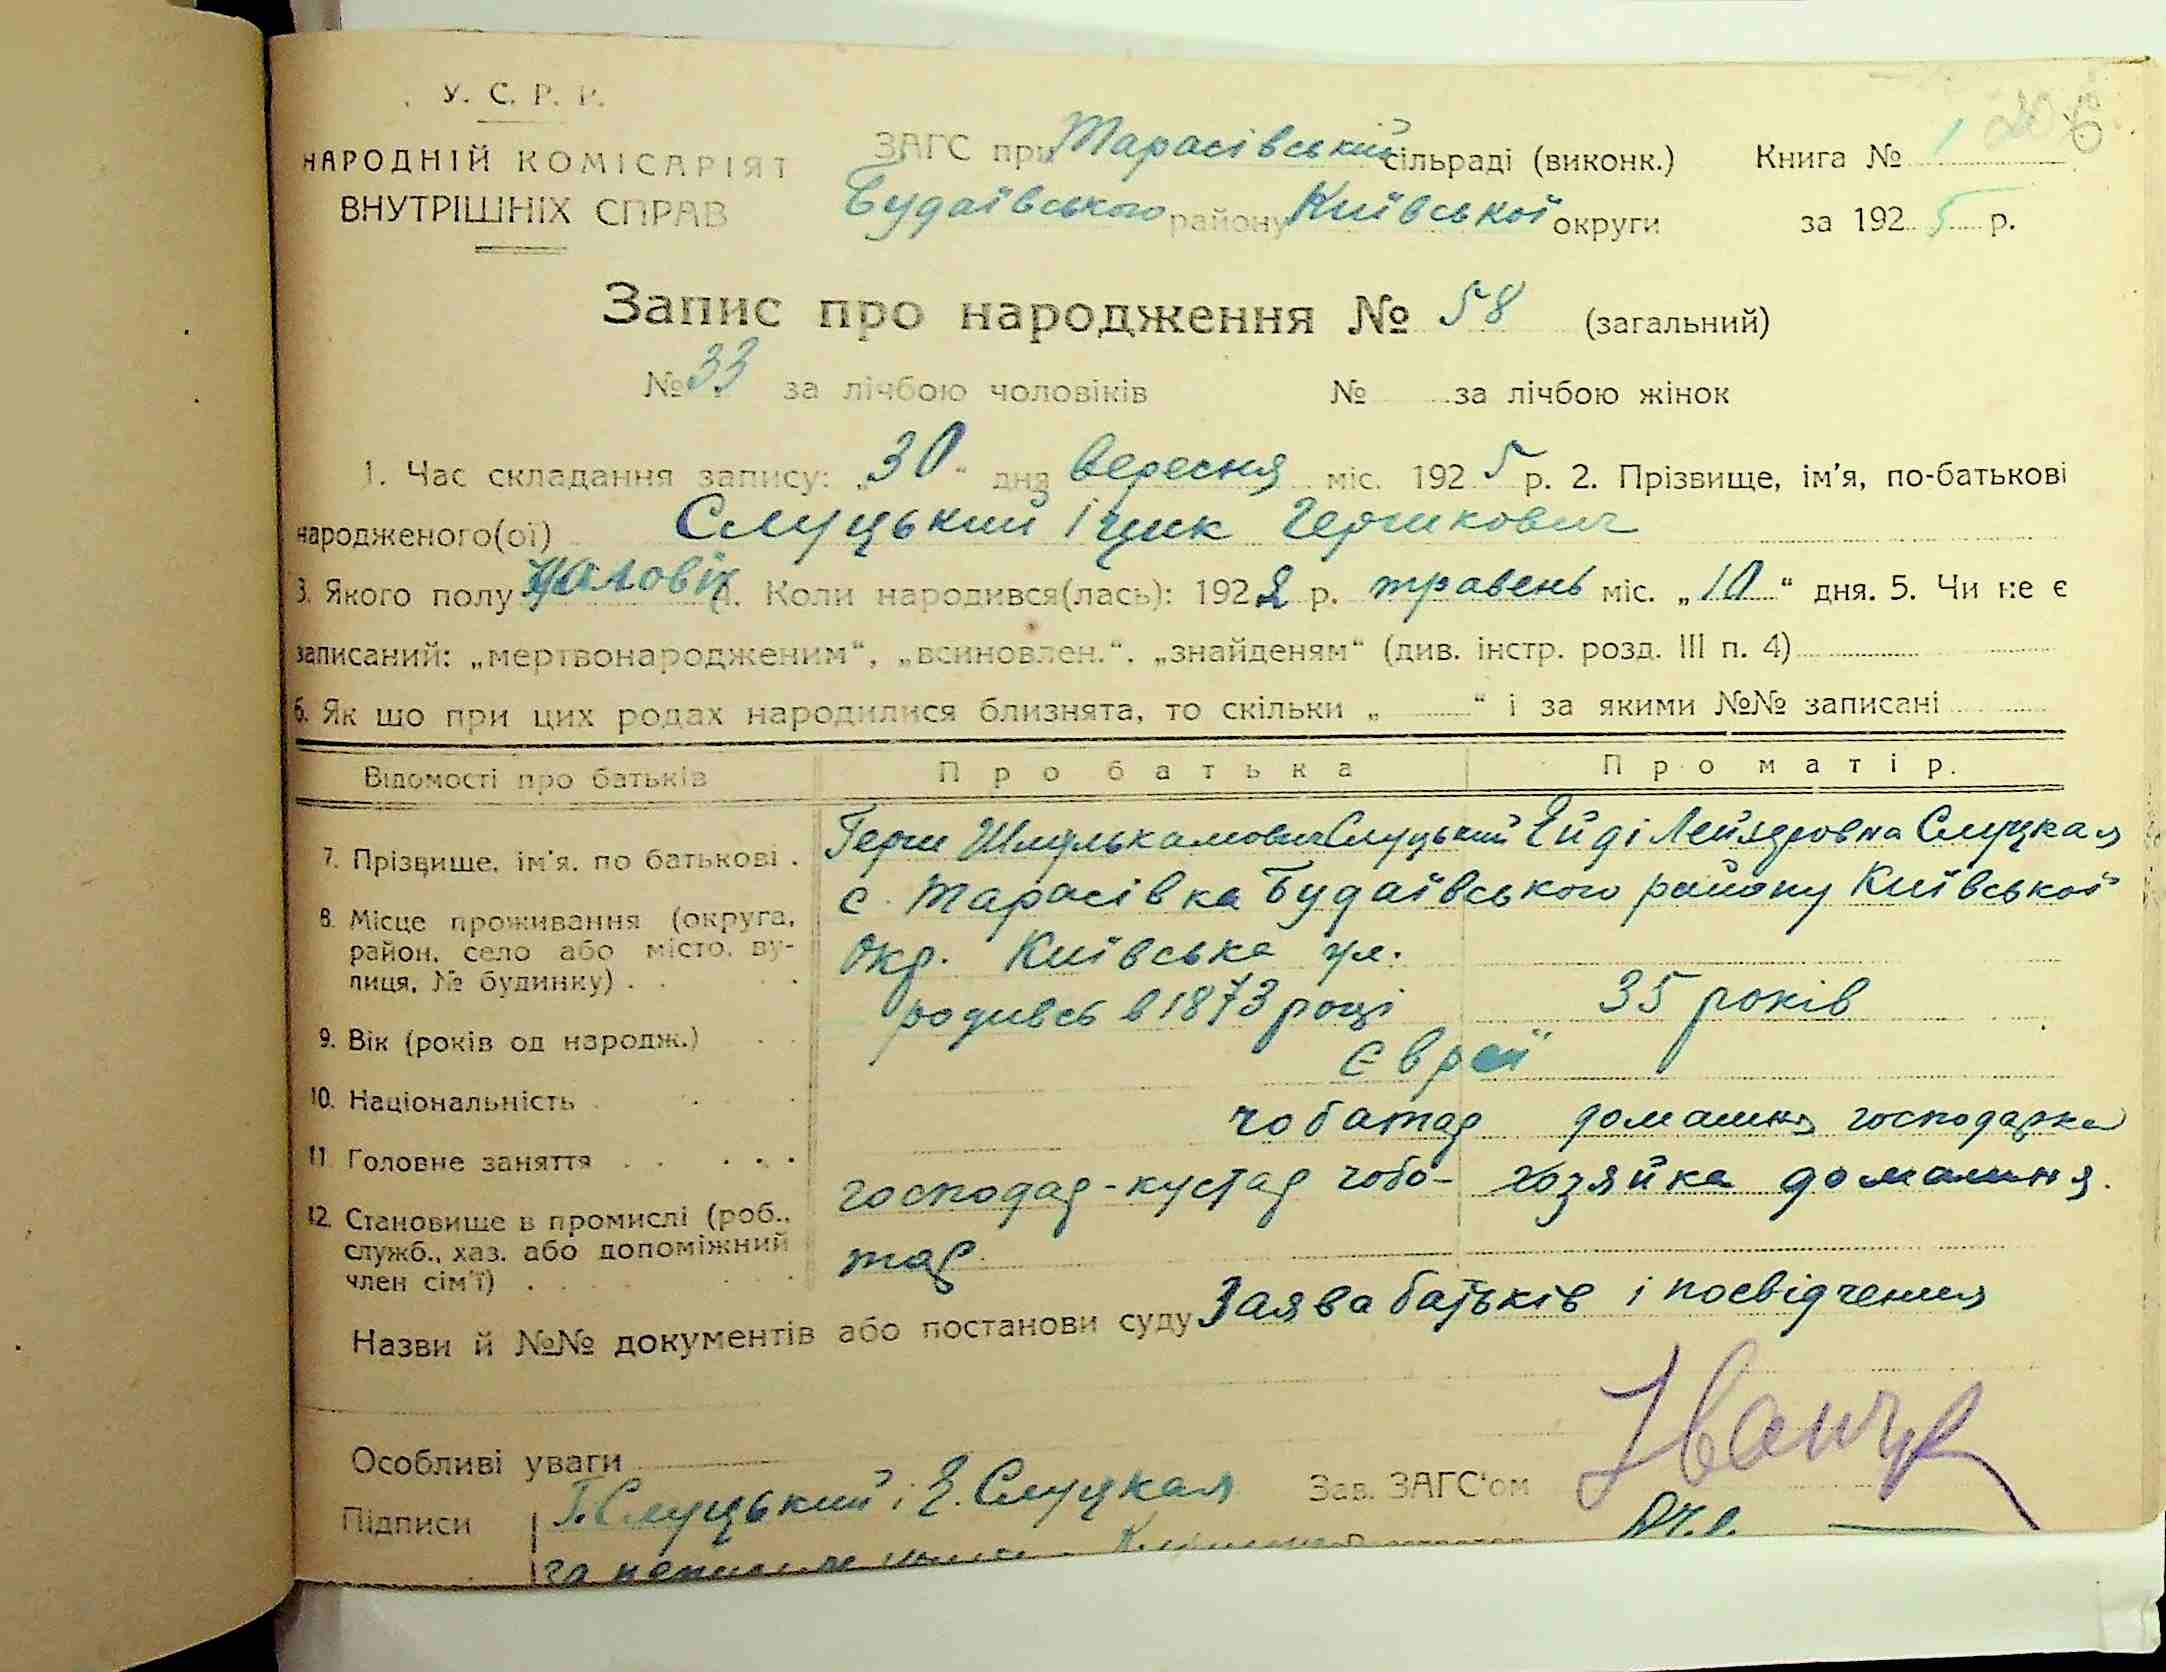 У. С. Р. Р.
НАРОДНІЙ КОМІСАРІЯТ
ВНУТРІШНІХ СПРАВ
ЗАГС при Тарасівський сільраді (виконк.)
Будаївського району Київської округи
Книга № 1
за 1925 р.
Запис про народження № 58 (загальний)
№ 33 за лічбою чоловіків № за лічбою жінок
1. Час складання запису: „30“ дня вересня міс. 1925 р. 2. Прізвище, ім'я, по-батькові
народженого(ої) Слуцький Іцик Гершкович
3. Якого полу чоловіч. Коли народився(лась): 1922 р. травень міс. „10“ дня. 5. Чи не є
записаний: „мертвонародженим“, „всиновлен.“, „знайденям“ (див. інстр. розд. III п. 4)
6. Як що при цих родах народилися близнята, то скільки „ “ і за якими №№ записані
Відомості про батьків Про батька Про матір.
7. Прізвище, ім'я, по батькові . Герш Слуцький Ейді Лейзеровна Слуцкая
8. Місце проживання (округа, район, село або місто, вулиця, № будинку) . . с. Тарасівка Будаївського району Київської
Окр. Київська ул.
9. Вік (років од народж.) родивсь в 1873 році 35 років
10. Національність . Єврей
11. Головне заняття . . . . . чоботар домашня господарка
12. Становище в промислі (роб., служб., хаз. або допоміжний член сім'ї) . господар-кустар чобо- хозяйка домашня.
тар
Назви й №№ документів або постанови суду Заява батьків і посвідчення
Особливі уваги
Підписи Г. Слуцький і Е. Слуцкая
Зав. ЗАГС'ом